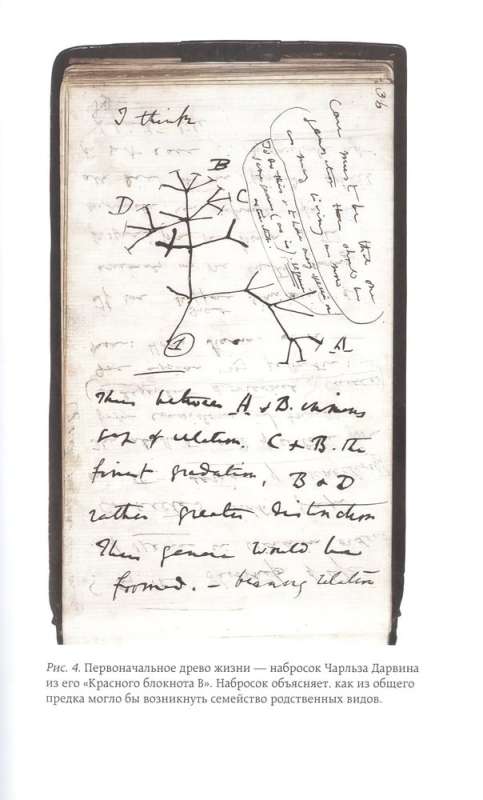 36
I think
Case must be that one
generation then should be
as many living as now
To do this & to have many species in
same genus (as is) requires
extinction.
B
C
D
1
A
Thus between A & B. immense
gap of relation. C & B. the
finest gradation, B & D
rather greater distinction
Thus genera would be
formed. — bearing relation
Рис. 4. Первоначальное древо жизни — набросок Чарльза Дарвина
из его «Красного блокнота В». Набросок объясняет, как из общего
предка могло бы возникнуть семейство родственных видов.